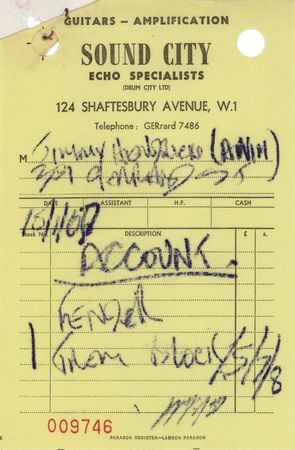 GUITARS – AMPLIFICATION
SOUND CITY
ECHO SPECIALISTS
(DRUM CITY LTD)
124 SHAFTESBURY AVENUE, W.1
Telephone: GERrard 7486
M Jimmy
DATE ASSISTANT H.P. CASH
Stock No. DESCRIPTION £ s.
ACCOUNT
FENDER
1 Trem Block
009746
PARAGON REGISTER—LAMSON PARAGON